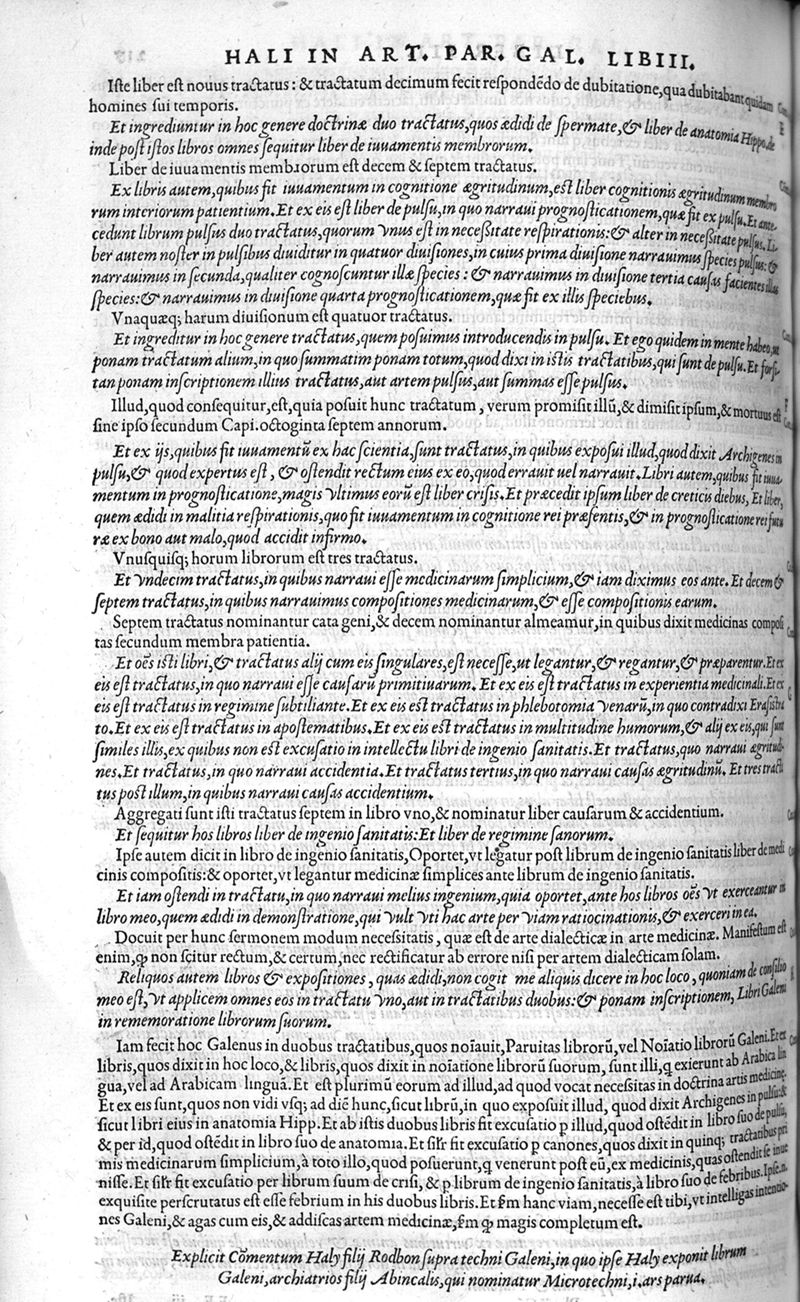 HALI IN ART. PAR. GAL. LIBIII.
Iste liber est nouus tractatus: & tractatum decimum fecit respondēdo de dubitatione, qua dubitabant quidam
homines sui temporis.
Et ingrediuntur in hoc genere doctrinæ duo tractatus, quos ædidi de spermate, & liber de anatomia Hippo. de
inde post istos libros omnes sequitur liber de iuuamentis membrorum.
Liber de iuuamentis membrorum est decem & septem tractatus.
Ex libris autem, quibus fit iuuamentum in cognitione ægritudinum, est liber cognitionis ægritudinum membro
rum interiorum patientium. Et ex eis est liber de pulsu, in quo narraui prognosticationem, quæ fit ex pulsu. Et ante
cedunt librum pulsus duo tractatus, quorum vnus est in necessitate respirationis: & alter in necessitate pulsus. Li
ber autem noster in pulsibus diuiditur in quatuor diuisiones, in cuius prima diuisione narrauimus species pulsus: &
narrauimus in secunda, qualiter cognoscuntur illæ species: & narrauimus in diuisione tertia causas facientes illas
species: & narrauimus in diuisione quarta prognosticationem, quæ fit ex illis speciebus.
Vnaquæq; harum diuisionum est quatuor tractatus.
Et ingreditur in hoc genere tractatus, quem posuimus introducendis in pulsu. Et ego quidem in mente habeo, ut
ponam tractatum alium, in quo summatim ponam totum, quod dixi in istis tractatibus, qui sunt de pulsu. Et forsi
tan ponam inscriptionem illius tractatus, aut artem pulsus, aut summas esse pulsus.
Illud, quod consequitur, est, quia posuit hunc tractatum, verum promisit illū, & dimisit ipsum, & mortuus est
sine ipso secundum Capi. octoginta septem annorum.
Et ex ijs, quibus fit iuuamentū ex hac scientia, sunt tractatus, in quibus exposui illud, quod dixit Archigenes in
pulsu, & quod expertus est, & ostendit rectum eius ex eo, quod errauit uel narrauit. Libri autem, quibus fit iuua
mentum in prognosticatione, magis vltimus eorū est liber crisis. Et præcedit ipsum liber de creticis diebus, Et liber,
quem ædidi in malitia respirationis, quo fit iuuamentum in cognitione rei præsentis, & in prognosticatione rei futu
ræ ex bono aut malo, quod accidit infirmo.
Vnusquisq; horum librorum est tres tractatus.
Et vndecim tractatus, in quibus narraui esse medicinarum simplicium, & iam diximus eos ante. Et decem &
septem tractatus, in quibus narrauimus compositiones medicinarum, & esse compositionis earum.
Septem tractatus nominantur cata geni, & decem nominantur almeamur, in quibus dixit medicinas composi
tas secundum membra patientia.
Et oēs isti libri, & tractatus alij cum eis singulares, est necesse, ut legantur, & regantur, & præparentur. Et ex
eis est tractatus, in quo narraui esse causarū primitiuarum. Et ex eis est tractatus in experientia medicinali. Et ex
eis est tractatus in regimine subtiliante. Et ex eis est tractatus in phlebotomia venarū, in quo contradixi Erasistra
to. Et ex eis est tractatus in apostematibus. Et ex eis est tractatus in multitudine humorum, & alij ex eis, qui sunt
similes illis, ex quibus non est excusatio in intellectu libri de ingenio sanitatis. Et tractatus, quo narraui ægritudi-
nes. Et tractatus, in quo narraui accidentia. Et tractatus tertius, in quo narraui causas ægritudinū. Et tres tracta
tus post illum, in quibus narraui causas accidentium.
Aggregati sunt isti tractatus septem in libro vno, & nominatur liber causarum & accidentium.
Et sequitur hos libros liber de ingenio sanitatis: Et liber de regimine sanorum.
Ipse autem dicit in libro de ingenio sanitatis, Oportet, vt legatur post librum de ingenio sanitatis liber de medi
cinis compositis: & oportet, vt legantur medicinæ simplices ante librum de ingenio sanitatis.
Et iam ostendi in tractatu, in quo narraui melius ingenium, quia oportet, ante hos libros oēs vt exerceantur in
libro meo, quem ædidi in demonstratione, qui vult vti hac arte per viam ratiocinationis, & exerceri in ea.
Docuit per hunc sermonem modum necessitatis, quæ est de arte dialecticæ in arte medicinæ. Manifestum est
enim, ꝙ non scitur rectum, & certum, nec rectificatur ab errore nisi per artem dialecticam solam.
Reliquos autem libros & expositiones, quas ædidi, non cogit me aliquis dicere in hoc loco, quoniam de consilio
meo est, vt applicem omnes eos in tractatu vno, aut in tractatibus duobus: & ponam inscriptionem, Libri Galeni
in rememoratione librorum suorum.
Iam fecit hoc Galenus in duobus tractatibus, quos noīauit, Paruitas librorū, vel Noīatio librorū Galeni. Et ex
libris, quos dixit in hoc loco, & libris, quos dixit in noīatione librorū suorum, sunt illi, q exierunt ab Arabica lin
gua, vel ad Arabicam linguā. Et est plurimū eorum ad illud, ad quod vocat necessitas in doctrina artis medicinę.
Et ex eis sunt, quos non vidi vsq; ad diē hunc, sicut librū, in quo exposuit illud, quod dixit Archigenes in pulsu: &
sicut libri eius in anatomia Hipp. Et ab istis duobus libris fit excusatio p illud, quod ostēdit in libro suo de pulsu,
& per id, quod ostēdit in libro suo de anatomia. Et silr fit excusatio p canones, quos dixit in quinq; tractatibus pri
mis medicinarum simplicium, à toto illo, quod posuerunt, q venerunt post eū, ex medicinis, quas ostendit se inue
nisse. Et silr fit excusatio per librum suum de crisi, & p librum de ingenio sanitatis, à libro suo de febribus. Ipse. n.
exquisite perscrutatus est esse febrium in his duobus libris. Et ẜm hanc viam, necesse est tibi, vt intelligas intentio-
nes Galeni, & agas cum eis, & addiscas artem medicinæ, ẜm ꝙ magis completum est.
Explicit Cōmentum Haly filij Rodbon supra techni Galeni, in quo ipse Haly exponit librum
Galeni, archiatrios filij Abincalis, qui nominatur Microtechni, i. ars parua.